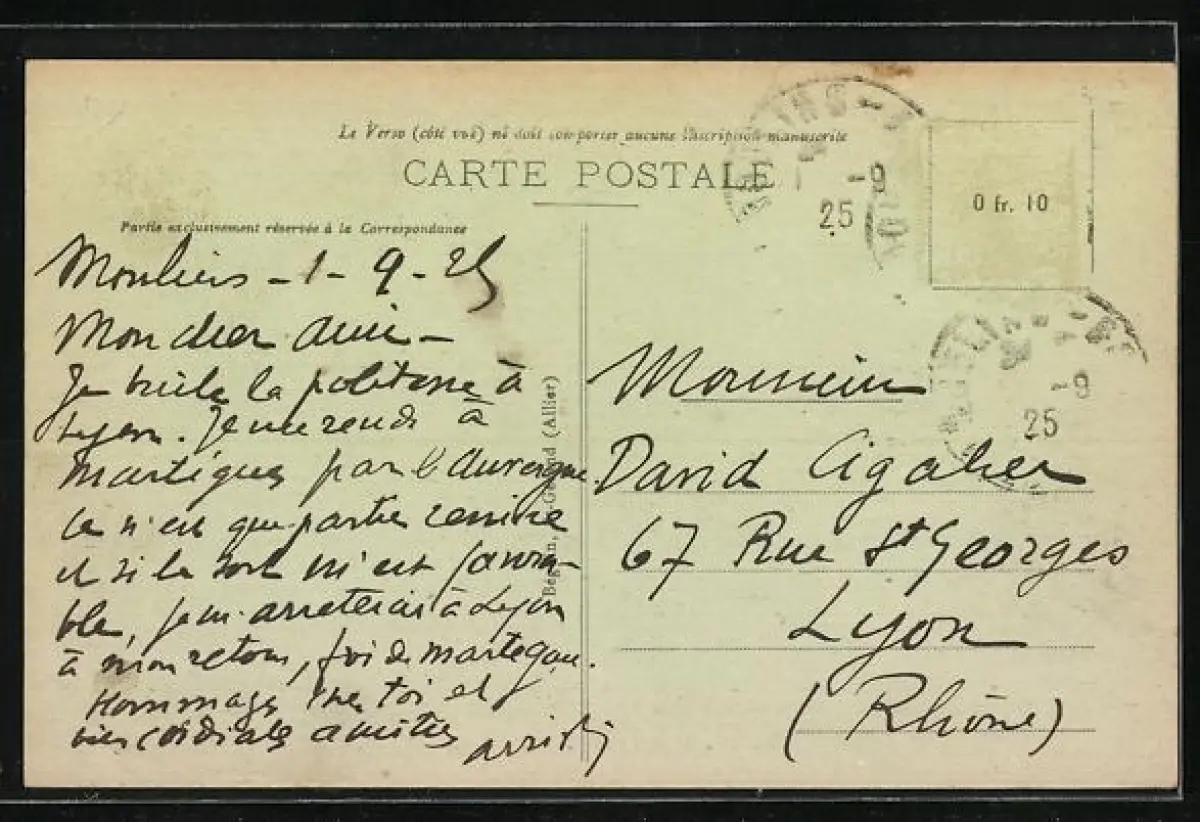 Le Verso (côté vue) ne doit comporter aucune inscription manuscrite
CARTE POSTALE
Partie exclusivement réservée à la Correspondance
0 fr. 10
MOULINS
-9
25
MOULINS
-9
25
Moulins - 1 - 9 - 25
Mon cher ami -
Je brûle la politesse à
Lyon. Je me rends à
Martigues par l'Auvergne
Ce n'est que partie remise
et si le sort m'est favora-
ble, je m'arrêterai à Lyon
à mon retour, foi de martegau.
Hommages chez toi et
cordiales amitiés
(Allier)
Monsieur
David Cigalier
67 Rue St Georges
Lyon
(Rhône)